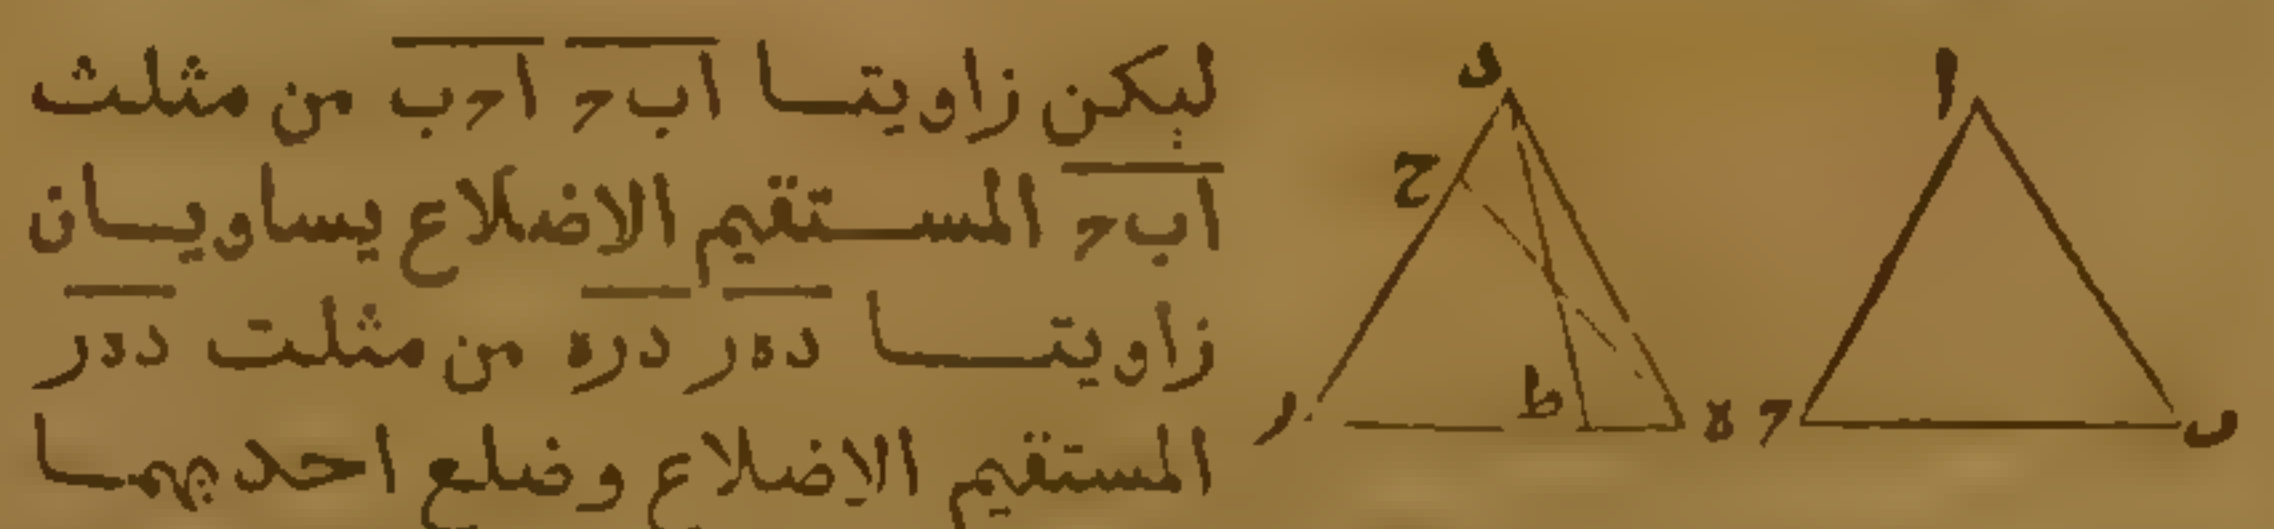 ليكن زاويتا اب‍ح اح‍ب من مثلث
اب‍ح المستقيم الاضلاع يساويان
زاويتا ده‍ر دره من مثلت ده‍ر
المستقيم الاضلاع وضلع احديهما
د
ا
ح
ر
ط
ه
ح
ب